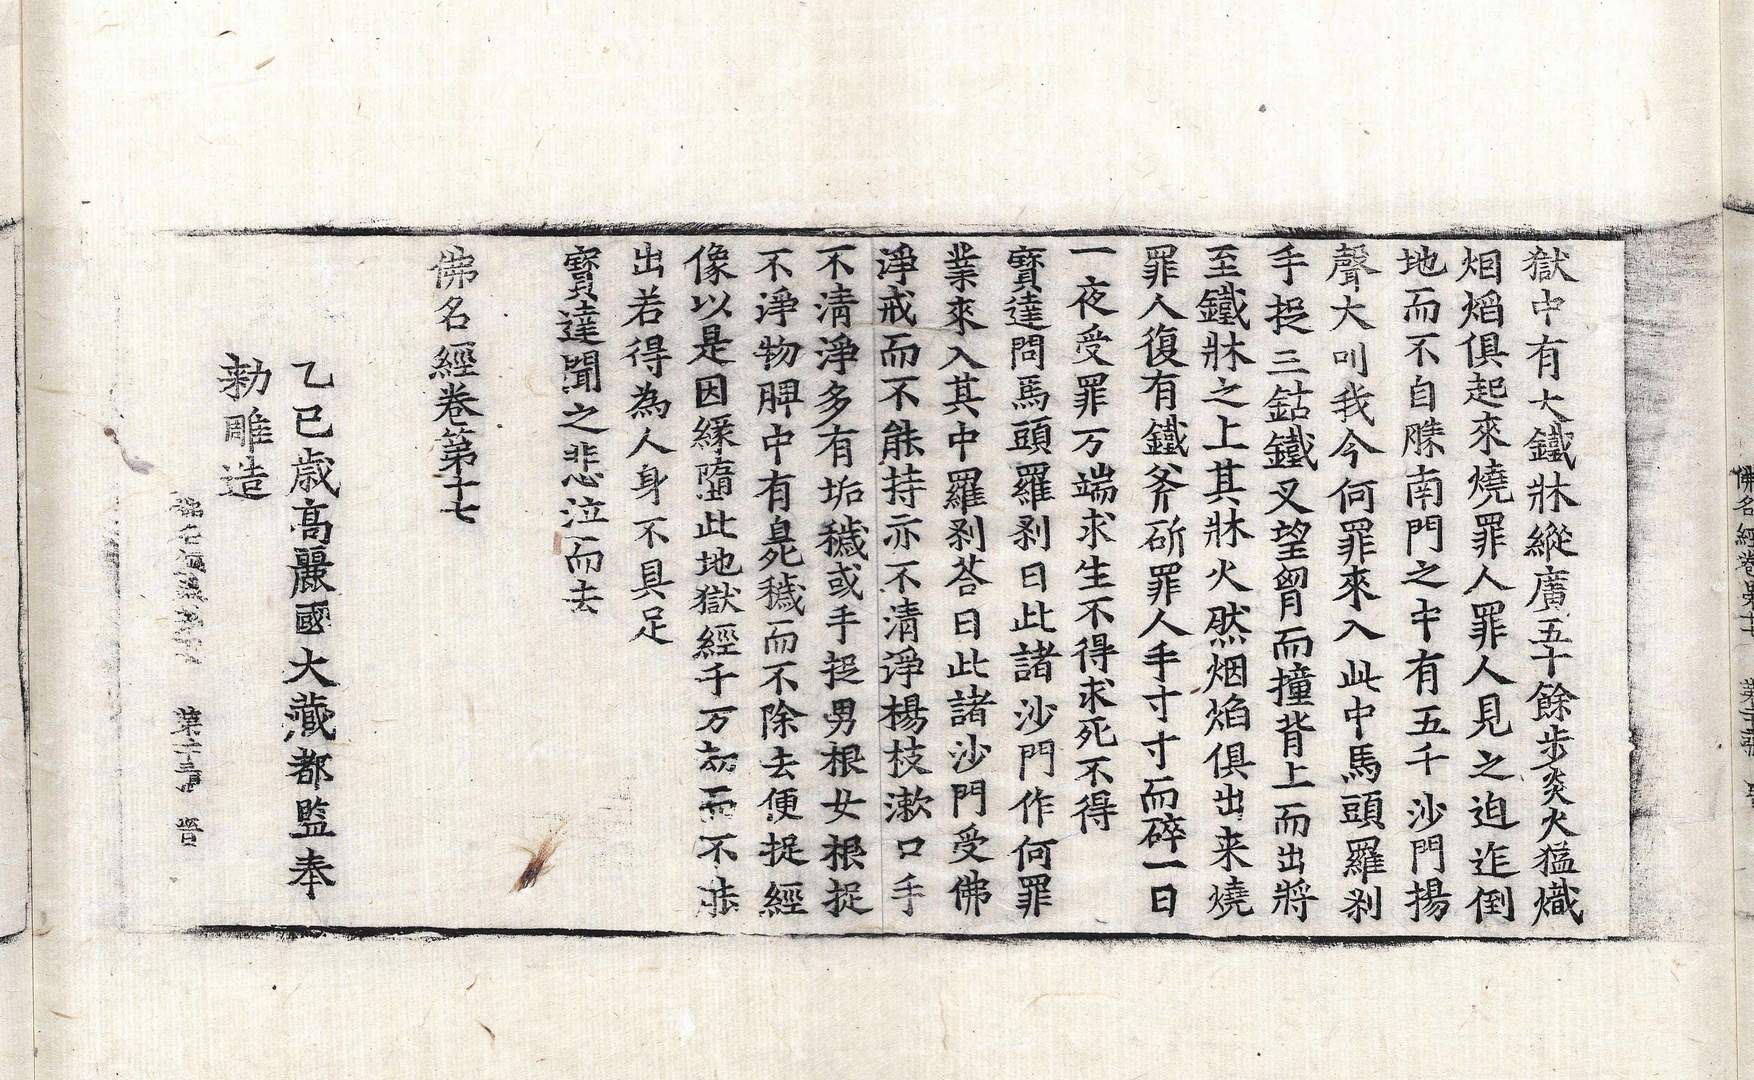 獄中有大鐵牀縱廣五十餘步炎火猛熾
烟熖俱起來燒罪人罪人見之迫迮倒
地而不自勝南門之中有五千沙門揚
聲大叫我今何罪來入此中馬頭羅刹
手捉三鈷鐵叉望胷而撞背上而出將
至鐵牀之上其牀火然烟焰俱出来燒
罪人復有鐵斧斫罪人手寸寸而碎一日
一夜受罪万端求生不得求死不得
寶達問馬頭羅刹曰此諸沙門作何罪
業來入其中羅刹荅曰此諸沙門受佛
淨戒而不能持亦不清淨楊枝漱口手
不清淨多有垢穢或手捉男根女根捉
不淨物脾中有臰穢而不除去便捉經
像以是因緣墮此地獄經千万劫而不
出若得為人身不具足
寶達聞之悲泣而去
佛名經卷第十七
乙巳歳高麗國大藏都監奉
勅雕造
佛名經卷